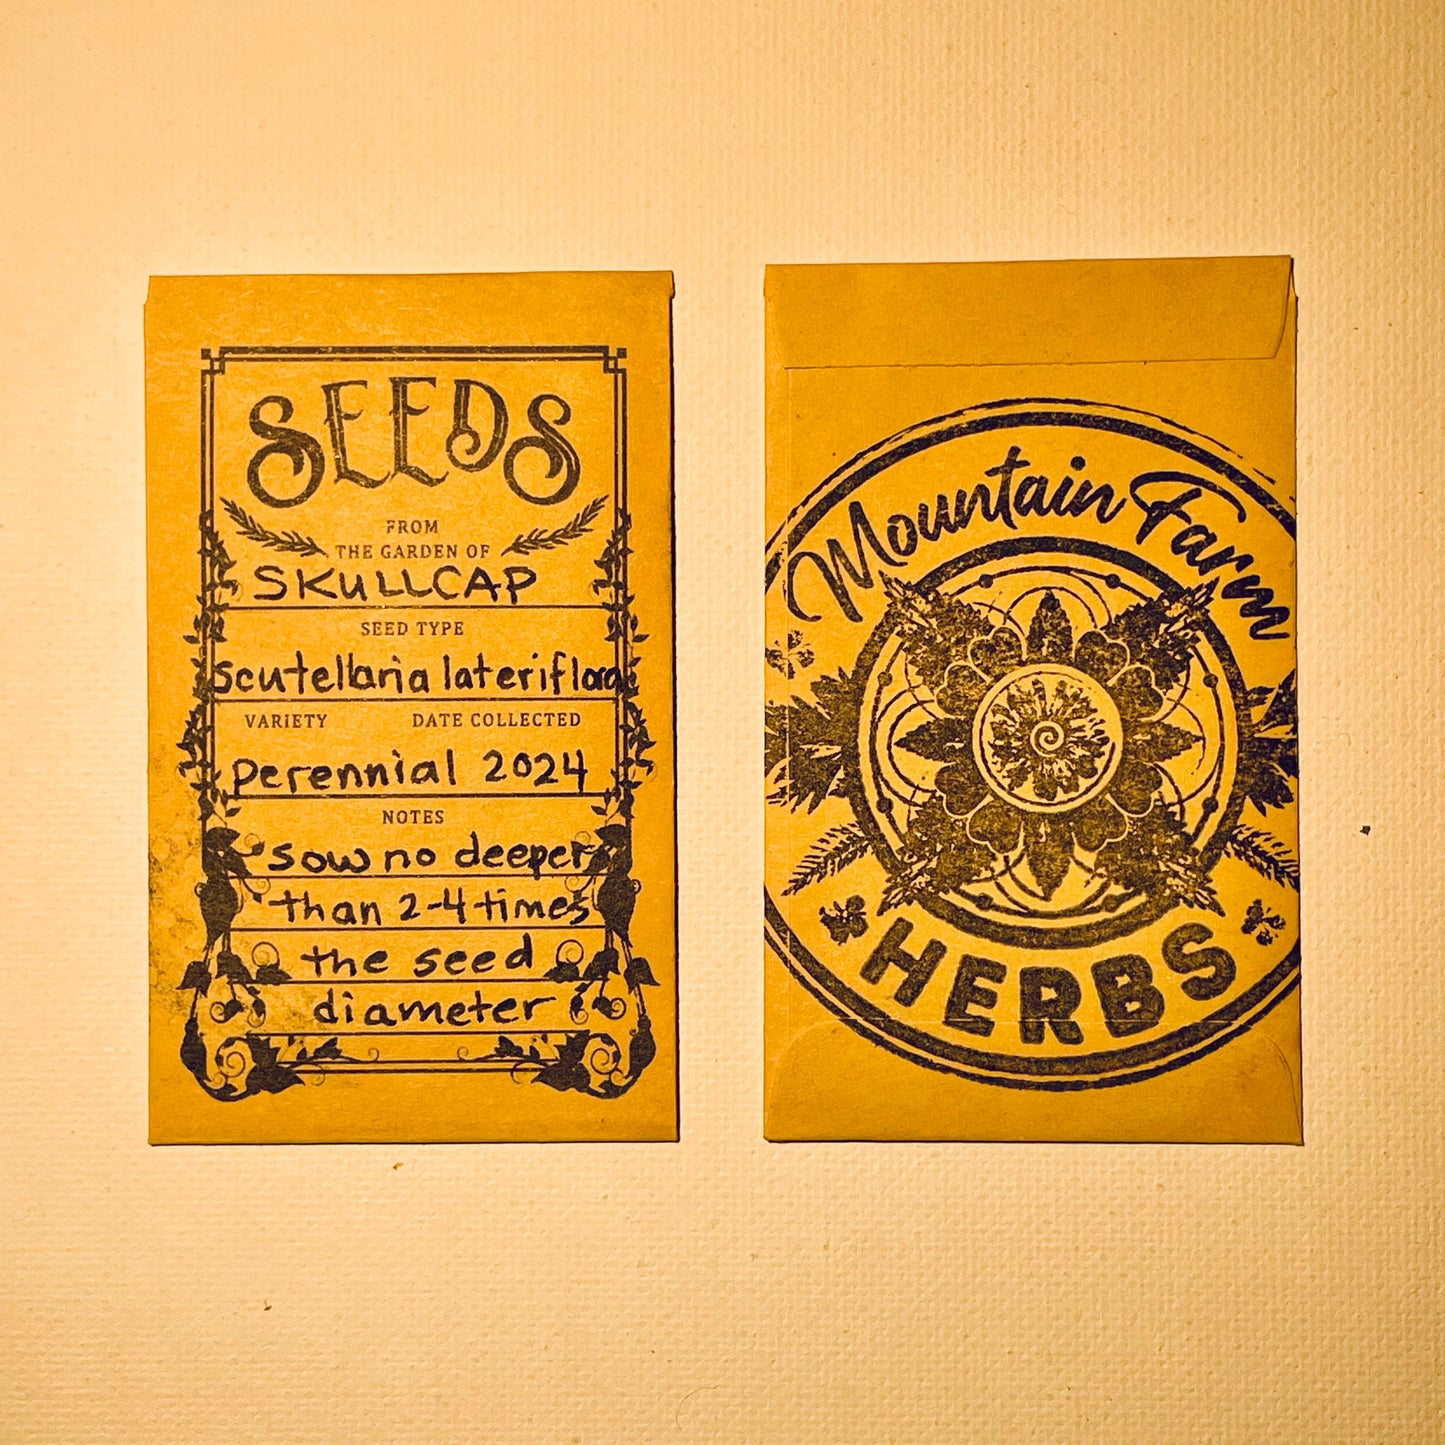 SEEDS
FROM
THE GARDEN OF
SKULLCAP
SEED TYPE
Scutellaria lateriflora
VARIETY DATE COLLECTED
perennial 2024
NOTES
sow no deeper
than 2-4 times
the seed
diameter
Mountain Farm
HERBS